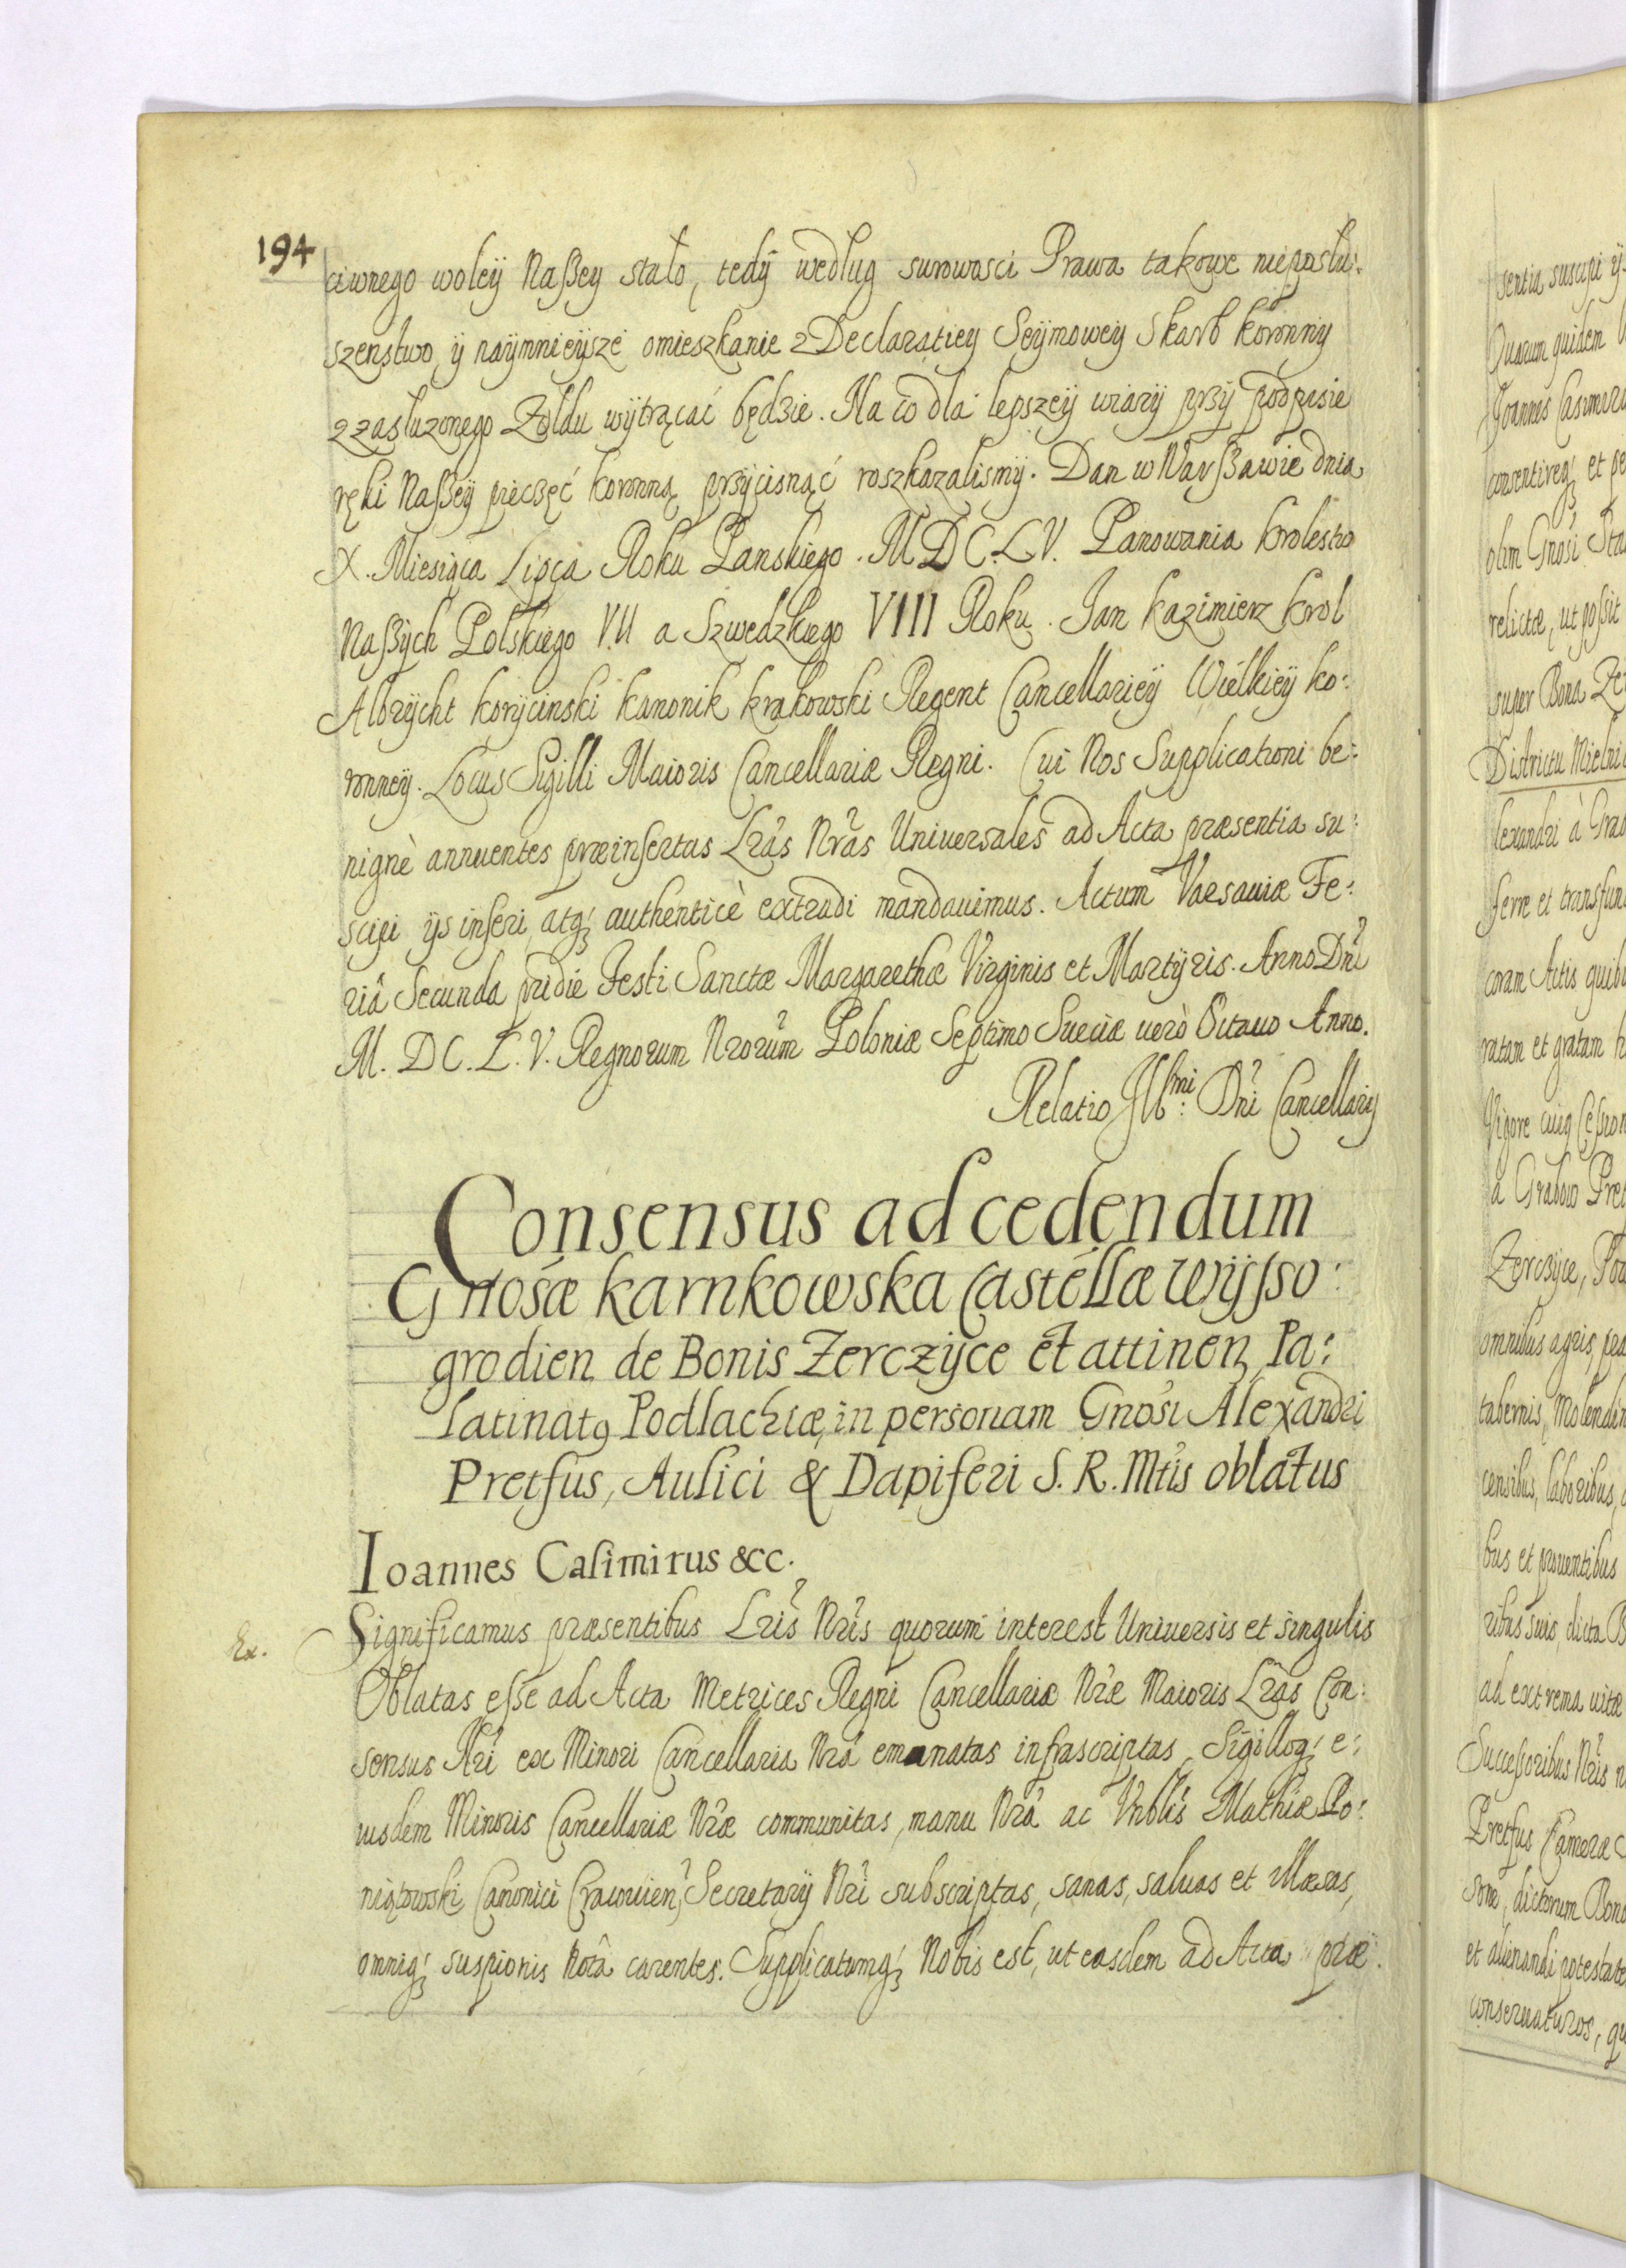 194
ciwnego woleÿ Naßey stało, tedÿ według surowosci Prawa takowe nieposłu:
szenstwo ÿ naÿmnieÿsze omieszkanie z Declaratieÿ Seÿmoweÿ Skarb koronnÿ
z zasłuzonego Zołdu wÿtrącać będzie. Na co dla lepszeÿ wiarÿ przÿ podpisie
ręki Naßeÿ pieczęć koronną przÿcisnąć roszkazalismÿ. Dan w Warßawie dnia
X. Miesiąca Lipca Roku Panskiego. M D C. L V. Panowania krolestw
Naßÿch Polskiego VII a Szwedzkiego VIII Roku. Jan Kazimierz krol
Albrÿcht korÿcinski kanonik krakowski Regent Cancellarieÿ Wielkieÿ ko:
ronneÿ. Locus Sigilli Maioris Cancellariæ Regni. Cui Nos Supplicationi be:
nignè annuentes præinsertas Lrãs Nrãs Universales ad Acta præsentia su:
scipi ijs inseri atq; authenticè extradi mandauimus. Actum Varsauiæ Fe:
riâ Secunda pridie Festi Sanctæ Margarethæ Virginis et Martÿris. Anno Dñi
M. D C. L. V. Regnorum Nrorũm Poloniæ Septimo Sueciæ uerò Octauo Anno.
Relatio Illmi: Dñi Cancellarij
Consensus ad cedendum
Gnosæ Karnkowska Castellæ Wÿsso:
grodien de Bonis Zerczÿce et attinen, Pa:
latinatꝰ Podlachiæ, in personam Gnosi Alexandri
Pretfus, Aulici & Dapiferi S. R. Mtis oblatus
Ioannes Casimirus &cc.
Ex.
Significamus præsentibus Lris Nris quorum interest Universis et singulis
Oblatas esse ad Acta Metrices Regni Cancellariæ Nræ Maioris Lras Con:
sensus Nri ex Minori Cancellaria Nrâ emanatas infrascriptas, Sigilloq; e:
iusdem Minoris Cancellariæ Nræ communitas, manu Nrâ ac Vnblis Mathiæ Po:
niątowski Canonici Cracouien, Secretarÿ Nri subscriptas, sanas, saluas et illæsas,
omniq; suspionis notâ carentes. Supplicatumq; Nobis est, ut easdem ad Acta præ.
sentia suscipi ÿ
Quarum quidem
Joannes Casimirus
consentireq; et pe
olim Gnosi Sta
relictæ, ut possit
super Bona Ze
Districtu Mielni
lexandri à Grab
ferre et transfun
coram Actis quibu
ratam et gratam h
Vigore cuiꝰ Cession
à Grabow Pret
Zerczÿce, Po
omnibus agris, pra
tabernis, Molendin
censibus, laboribus,
bus et prouentibus
ribus suis dicta B
ad extrema uitæ
Successoribus Nris n
Pretfus Cameræ
sonæ, dictorum Bono
et alienandi potestate
conseruaturos, qu